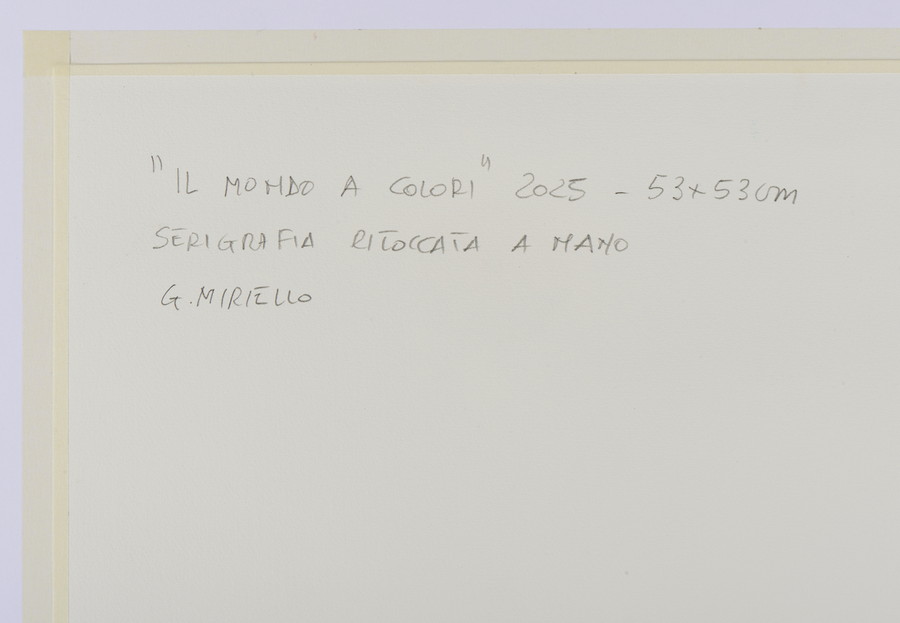 "IL MONDO A COLORI" 2025 - 53x53cm
SERIGRAFIA RITOCCATA A MANO
G. MIRIELLO